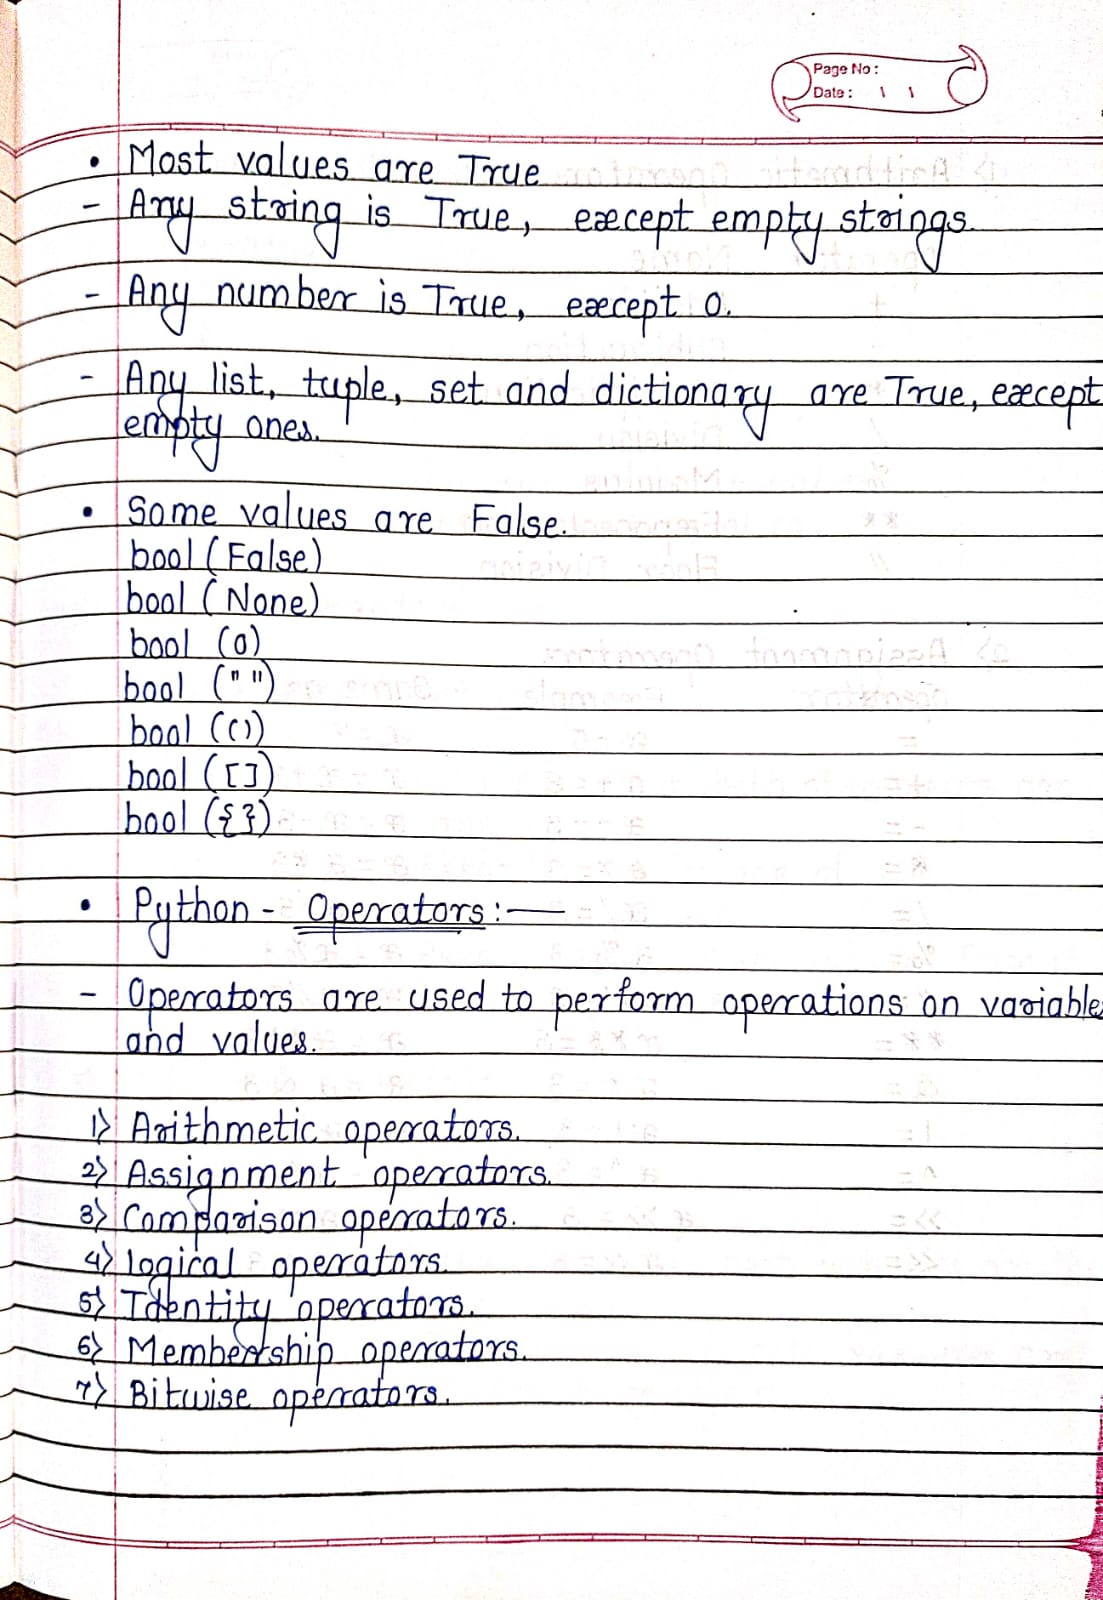 Page No :
Date : \ \
• Most values are True
- Any string is True, except empty strings.
- Any number is True, except 0.
- Any list, tuple, set and dictionary are True, except
empty ones.
• Some values are False.
bool (False)
bool (None)
bool (0)
bool (" ")
bool (())
bool ([])
bool ({})
• Python - Operators :—
- Operators are used to perform operations on variable
and values.
1) Arithmetic operators.
2) Assignment operators.
3) Comparison operators.
4) Logical operators.
5) Identity operators.
6) Membership operators.
7) Bitwise operators.